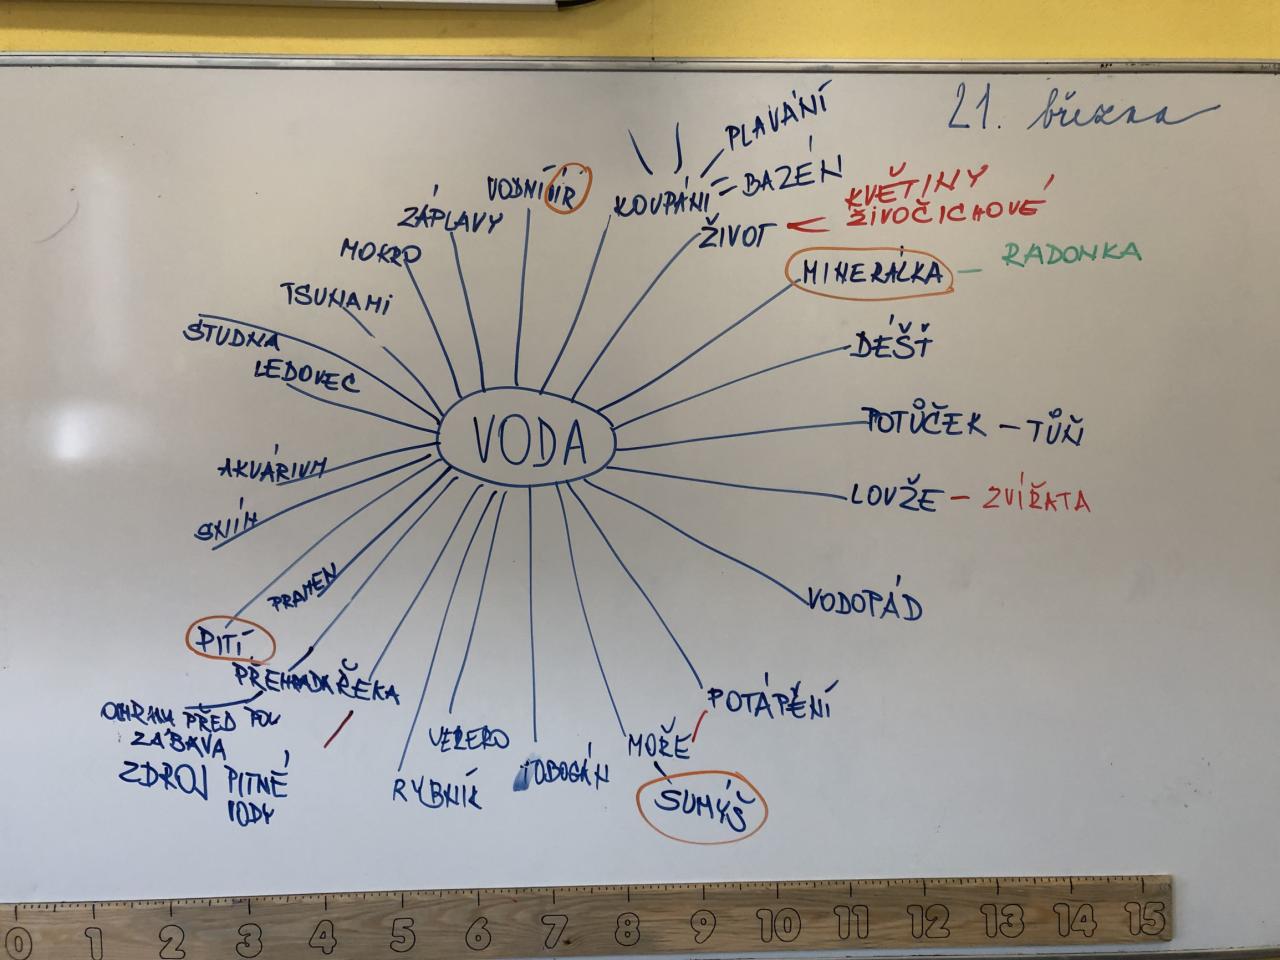 21. března
PLAVÁNÍ
BAZÉN
KOUPÁNÍ
VODNÍ VÍR
ZÁPLAVY
MOKRO
TSUNAMI
STUDNA
LEDOVEC
AKVÁRIUM
SNÍH
PRAMEN
PITÍ
PŘEHRADA
OCHRANA PŘED POV
ZÁBAVA
ZDROJ PITNÉ
VODY
ŘEKA
RYBNÍK
TOBOGÁN
MOŘE
SUMÝŠ
POTÁPĚNÍ
VODOPÁD
LOUŽE – ZVÍŘATA
POTŮČEK – TŮŇ
DÉŠŤ
MINERÁLKA – RADONKA
ŽIVOT
KVĚTINY
ŽIVOČICHOVÉ
VODA
0 1 2 3 4 5 6 7 8 9 10 11 12 13 14 15